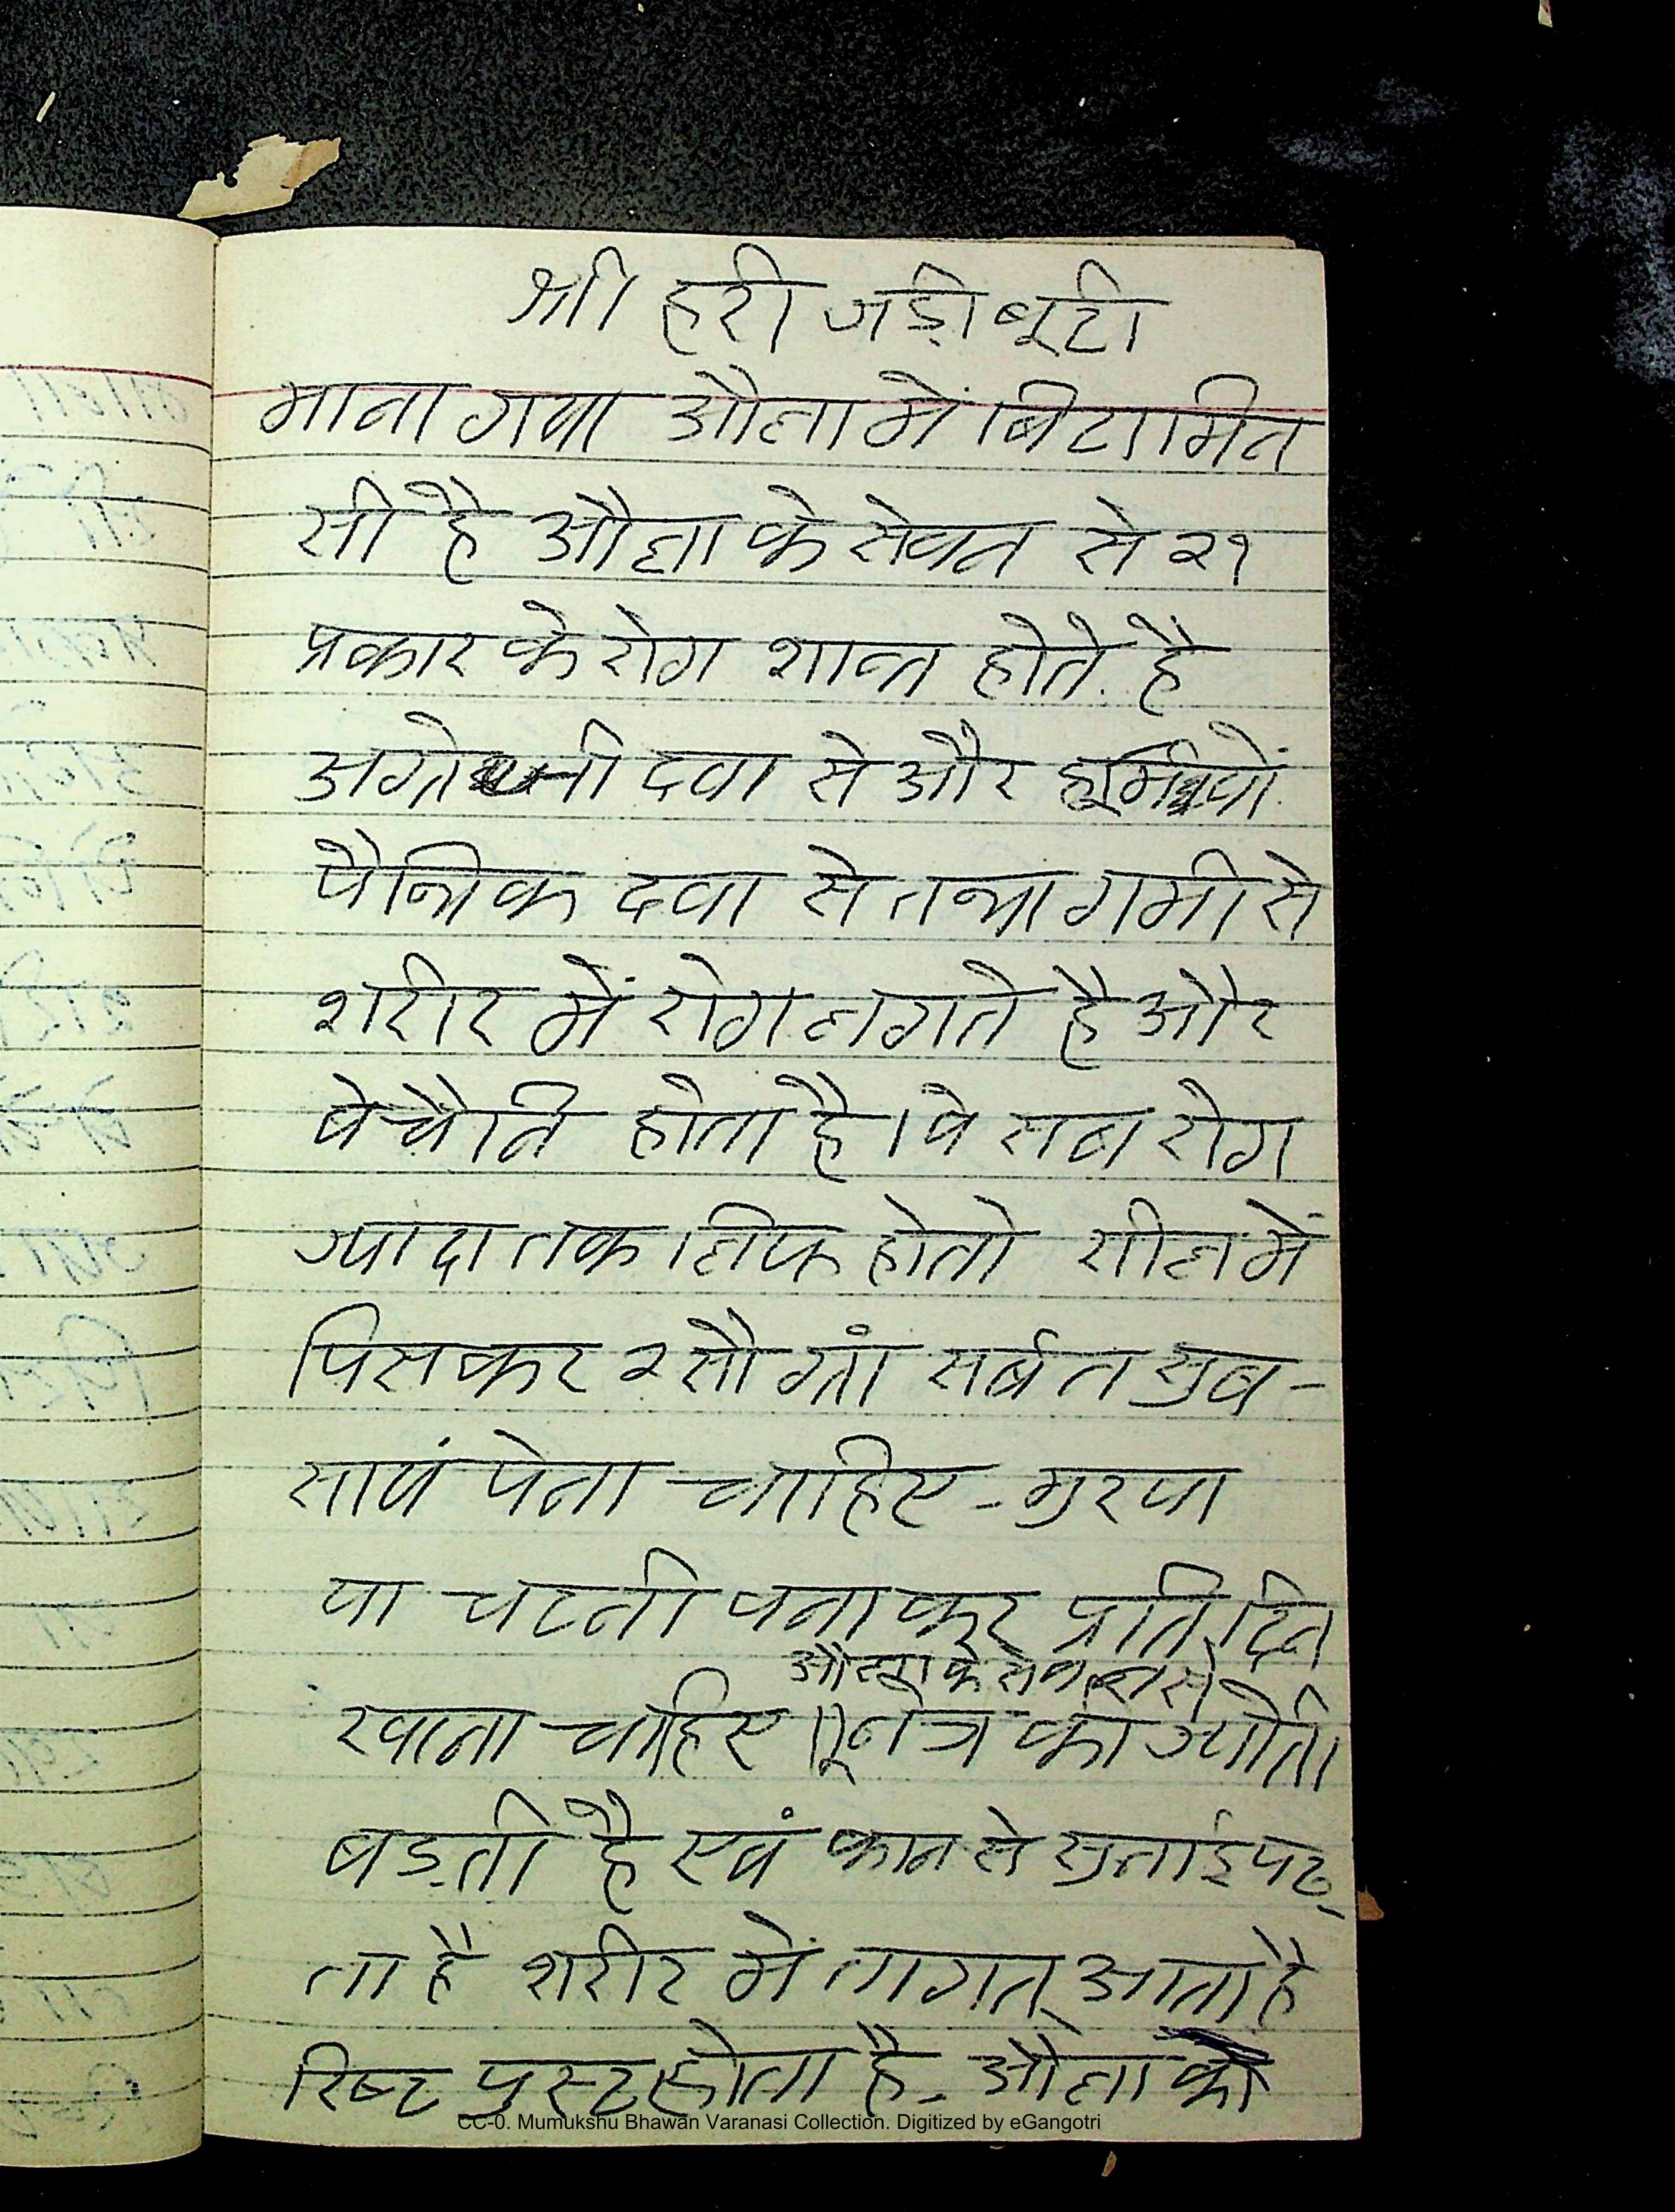 श्री हरी जड़ी बूटी
माना गया औला में बिटामित
सी है औला के सेवन से २१
प्रकार के रोग शान्त होते है
दवा से और
पैत्रिक दवा से तथा गर्मी से
शरीर में रोग लगते है और
बेचैनि होता है। ये सब रोग
ज्यादा तकलिफ हो तो सील में
पिसकर २ सौ ग्रां सर्बत सुब-
सायं पेना चाहिए - मुरवा
या चटनी वनाकर प्रतिदिन
औला के सेवन से
खाना चाहिए। नेत्र का ज्योती
बड़ती है एवं कान से सुनाई पड़
ता है शरीर में तागत् आता है
रिष्ट पुस्ट होता है - औला को
CC-0. Mumukshu Bhawan Varanasi Collection. Digitized by eGangotri